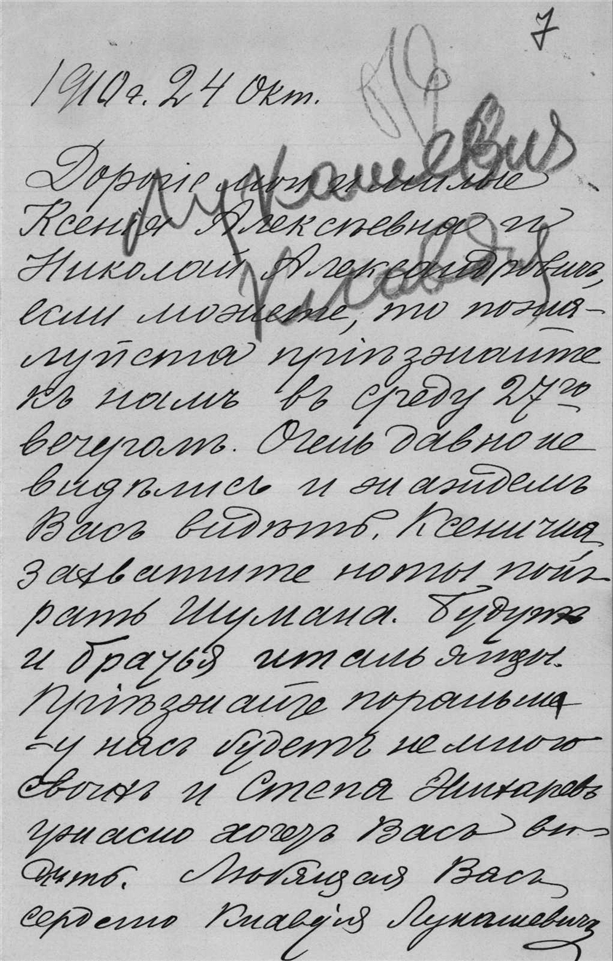 7
1910 г. 24 Окт.
Лукашевич
Клавдия
Дорогіе мои и милые
Ксенія Алексѣевна и
Николай Александровичъ,
если можете, то пожа-
луйста пріѣзжайте
къ намъ въ среду 27го
вечеромъ. Очень давно не
видѣлись и жаждемъ
Васъ видѣть. Ксеничка,
захватите ноты поиг-
рать Шумана. Будутъ
и братья итальянцы.
Пріѣзжайте пораньше
- у насъ будетъ немного
своихъ и Степа Жихаревъ
ужасно хочетъ Васъ ви-
дѣть. Любящая Васъ
сердечно Клавдія Лукашевичъ